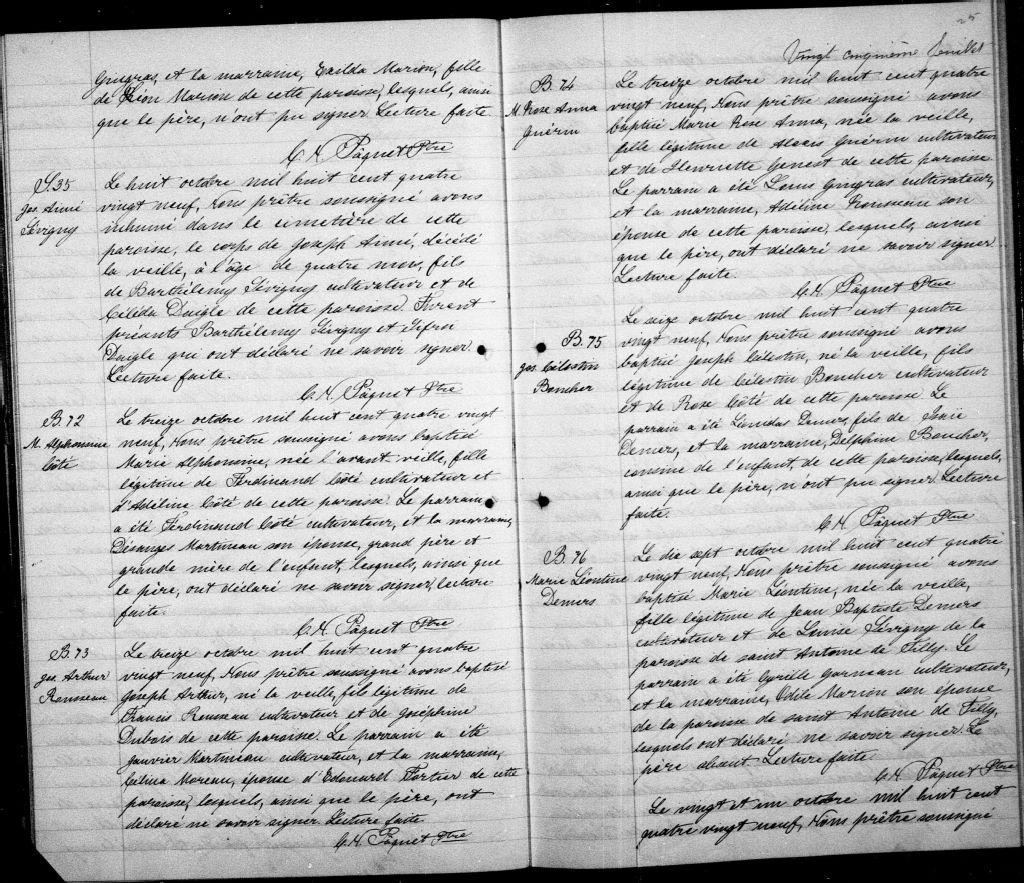 Gingras, et la marraine, Exilda Marion, fille
de Léon Marion de cette paroisse, lesquels, ainsi
que le père, n'ont pu signer. Lecture faite.
C. H. Paquet Ptre
S. 35
Jos. Aimé
Sévigny
Le huit octobre mil huit cent quatre
vingt neuf, Nous prêtre soussigné avons
inhumé dans le cimetière de cette
paroisse, le corps de Joseph Aimé, décédé
la veille, à l'âge de quatre mois, fils
de Barthélemy Sévigny cultivateur et de
Céleda Daigle de cette paroisse. Furent
présents Barthélemy Sévigny et
Daigle qui ont déclaré ne savoir signer.
Lecture faite.
C. H. Paquet Ptre
B. 72
M. Alphonsine
Côté
Le treize octobre mil huit cent quatre vingt
neuf, Nous prêtre soussigné avons baptisé
Marie Alphonsine, née l'avant veille, fille
légitime de Ferdinand Côté cultivateur et
d'Adéline Côté de cette paroisse. Le parrain
a été Ferdinand Côté cultivateur, et la marraine,
Désanges Martineau son épouse, grand père et
grande mère de l'enfant, lesquels, ainsi que
le père, ont déclaré ne savoir signer, lecture
faite.
C. H. Paquet Ptre
B. 73
Jos. Arthur
Rousseau
Le treize octobre mil huit cent quatre
vingt neuf, Nous prêtre soussigné avons baptisé
Joseph Arthur, né la veille, fils légitime de
Francis Rousseau cultivateur et de Joséphine
Dubois de cette paroisse. Le parrain a été
Janvier Martineau cultivateur, et la marraine,
Célina Moreau, épouse d'Edouard Fortier de cette
paroisse, lesquels, ainsi que le père, ont
déclaré ne savoir signer. Lecture faite
C. H. Paquet Ptre
25
Vingt cinquième feuillet
B. 74
M. Rose Anna
Guérin
Le treize octobre mil huit cent quatre
vingt neuf, Nous prêtre soussigné avons
baptisé Marie Rose Anna, née la veille,
fille légitime de Alexis Guérin cultivateur
et de Henriette Genest de cette paroisse.
Le parrain a été Louis Gingras cultivateur,
et la marraine, Adéline Rousseau son
épouse de cette paroisse, lesquels, ainsi
que le père, ont déclaré ne savoir signer
Lecture faite.
C. H. Paquet Ptre
B. 75
Jos Célestin
Boucher
Le seize octobre mil huit cent quatre
vingt neuf, Nous prêtre soussigné avons
baptisé Joseph Célestin, né la veille, fils
légitime de Célestin Boucher cultivateur
et de Rose Côté de cette paroisse. Le
parrain a été Léonidas Demers, fils de Isaïe
Demers, et la marraine, Delphine Boucher,
cousine de l'enfant, de cette paroisse, lesquels,
ainsi que le père, n'ont pu signer. Lecture
faite.
C. H. Paquet Ptre
B. 76
Marie Léontine
Demers
Le dix sept octobre mil huit cent quatre
vingt neuf, Nous prêtre soussigné avons
baptisé Marie Léontine, née la veille,
fille légitime de Jean Baptiste Demers
cultivateur et de Louise Sévigny de la
paroisse de saint Antoine de Tilly. Le
parrain a été Cyrille Garneau cultivateur,
et la marraine, Odile Marion son épouse
de la paroisse de saint Antoine de Tilly,
lesquels ont déclaré ne savoir signer. Le
père absent. Lecture faite.
C. H. Paquet Ptre
Le vingt et un octobre mil huit cent
quatre vingt neuf, Nous prêtre soussigné